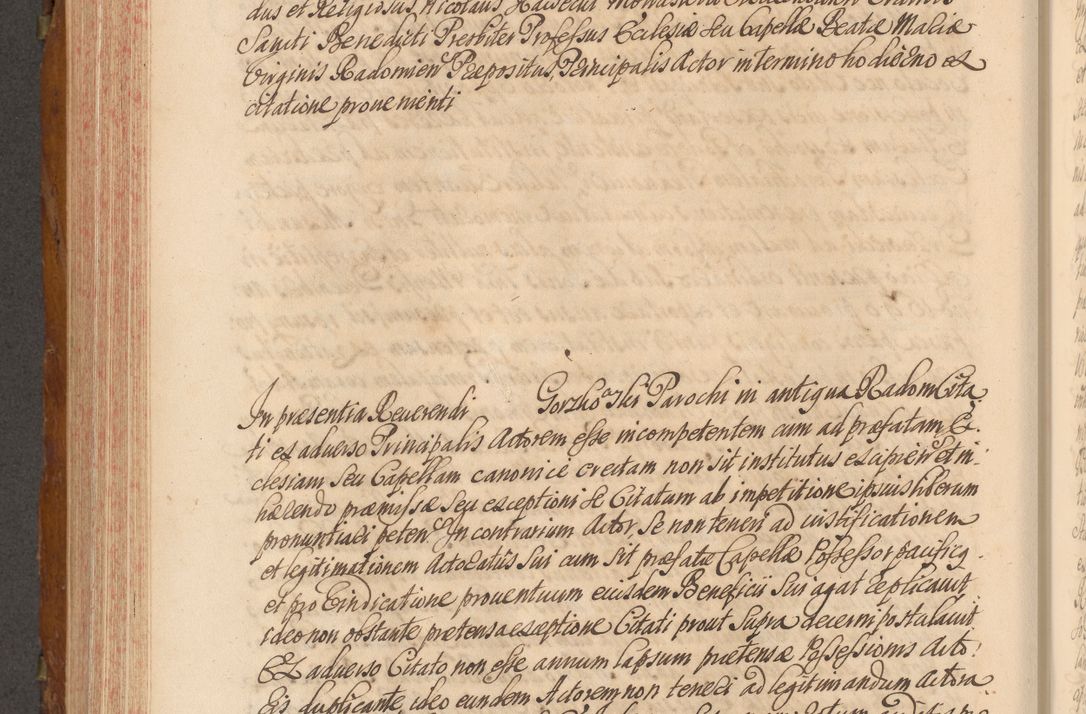 dus et Religiosus Nicolaus
Sancti Benedicti Presbiter Professus Ecclesiæ seu Capellæ Beatæ Mariæ
Virginis Radomien Præpositus, Principalis Actor in termino hodierno ex
citatione provenienti
In præsentia Reverendi Gorzkowski Parochi in antiqua Radom Cita
ti ex adverso Principalis Actorem esse incompetentem cum ad præfatam Ec
clesiam seu Capellam canonice erectam non sit institutus excipien et in
hærendo præmissæ seu exceptioni se Citatum ab impetitione ipsius liberum
pronuntiari peten In contrarium Actor, se non teneri ad iustificationem
et legitimationem Actoratus sui cum sit præfatæ Capellæ Possessor pacificq
et pro vindicatione proventuum eiusdem Beneficii sui agat replicavit
ideo non obstante prætensa exceptione Citati prout supra decerni postulavit
Ex adverso Citato non esse annum lapsum prætensæ Possessionis Acto
ris duplicante ideo eundem Actorem non teneri ad legitimandum Actora